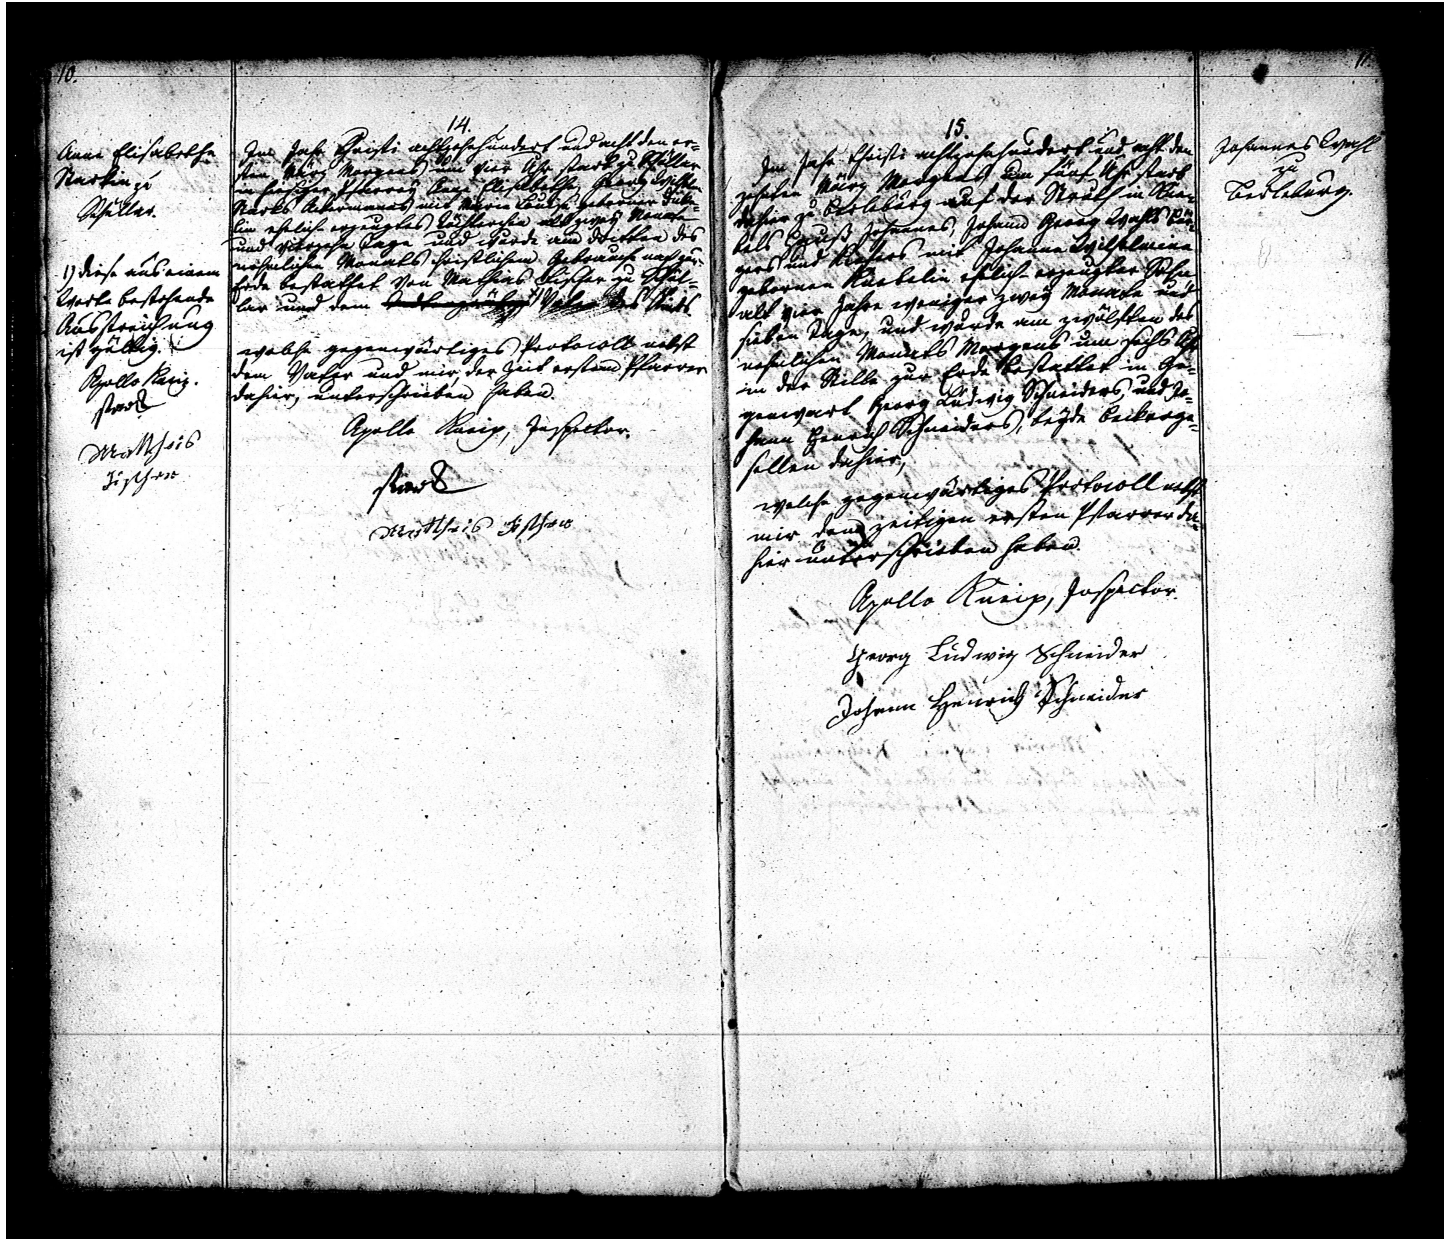 10.
Anna Elisabethe
Starkin zu
Schüllar.
1) diese aus einem
Worte bestehende
Ausstreichung
ist gültig.
Apollo Kneip.
Stark
Mattheis
Fischer
14.
Im Jahr Christi achtzehnhundert und acht den er-
sten März Morgens um vier Uhr starb zu Schüllar
in hiesiger Pfarrey Anne Elisabethe, Georg
Starks Ackermanns mit Marie Louise geborner
lin ehelich erzeugtes Töchterchen alt zwey Monate
und vierzehn Tage und wurde am dritten des
nehmlichen Monats christlichem Gebrauche nach zur
Erde bestattet von Mathias Fischer zu Schül-
lar und dem Vater des Kinds
welche gegenwärtiges Protocoll nebst
dem Vater und mir der Zeit erstem Pfarrer
dahier, unterschrieben haben.
Apollo Kneip, Inspector.
Stark
Mattheis Fischer
15.
Im Jahr Christi achtzehnhundert und acht den
zehnten März Morgens um fünf Uhr starb
dahier zu Berleburg auf der Struth in
bels Hauß Johannes, Johann Georg Wahls Bür-
gers und mit Johanna Wilhelmina
gebornen Knebelin ehelich erzeugter Sohn
alt vier Jahre weniger zwey Monate und
sieben Tage, und wurde am zwölften des
nehmlichen Monats Morgens um sechs Uhr
in der Stille zur Erde bestattet in Ge-
genwart Georg Ludwig Schneiders, und Jo-
hann Henrich Schneiders, beyde Beckerge-
sellen dahier,
welche gegenwärtiges Protocoll nebst
mir dem zeitigen ersten Pfarrer da-
hier unterschrieben haben.
Apollo Kneip, Inspector.
Georg Ludwig Schneider
Johann Henrich Schneider
11.
Johannes Wahl
zu
Berleburg.